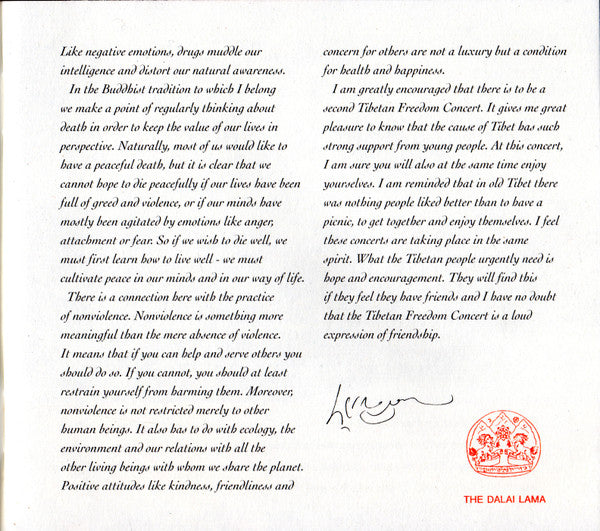 Like negative emotions, drugs muddle our
intelligence and distort our natural awareness.
In the Buddhist tradition to which I belong
we make a point of regularly thinking about
death in order to keep the value of our lives in
perspective. Naturally, most of us would like to
have a peaceful death, but it is clear that we
cannot hope to die peacefully if our lives have been
full of greed and violence, or if our minds have
mostly been agitated by emotions like anger,
attachment or fear. So if we wish to die well, we
must first learn how to live well - we must
cultivate peace in our minds and in our way of life.
There is a connection here with the practice
of nonviolence. Nonviolence is something more
meaningful than the mere absence of violence.
It means that if you can help and serve others you
should do so. If you cannot, you should at least
restrain yourself from harming them. Moreover,
nonviolence is not restricted merely to other
human beings. It also has to do with ecology, the
environment and our relations with all the
other living beings with whom we share the planet.
Positive attitudes like kindness, friendliness and
concern for others are not a luxury but a condition
for health and happiness.
I am greatly encouraged that there is to be a
second Tibetan Freedom Concert. It gives me great
pleasure to know that the cause of Tibet has such
strong support from young people. At this concert,
I am sure you will also at the same time enjoy
yourselves. I am reminded that in old Tibet there
was nothing people liked better than to have a
picnic, to get together and enjoy themselves. I feel
these concerts are taking place in the same
spirit. What the Tibetan people urgently need is
hope and encouragement. They will find this
if they feel they have friends and I have no doubt
that the Tibetan Freedom Concert is a loud
expression of friendship.
THE DALAI LAMA